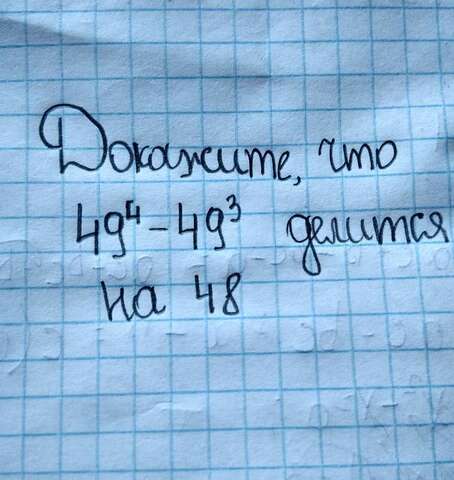 Докажите, что
49⁴-49³ делится
на 48